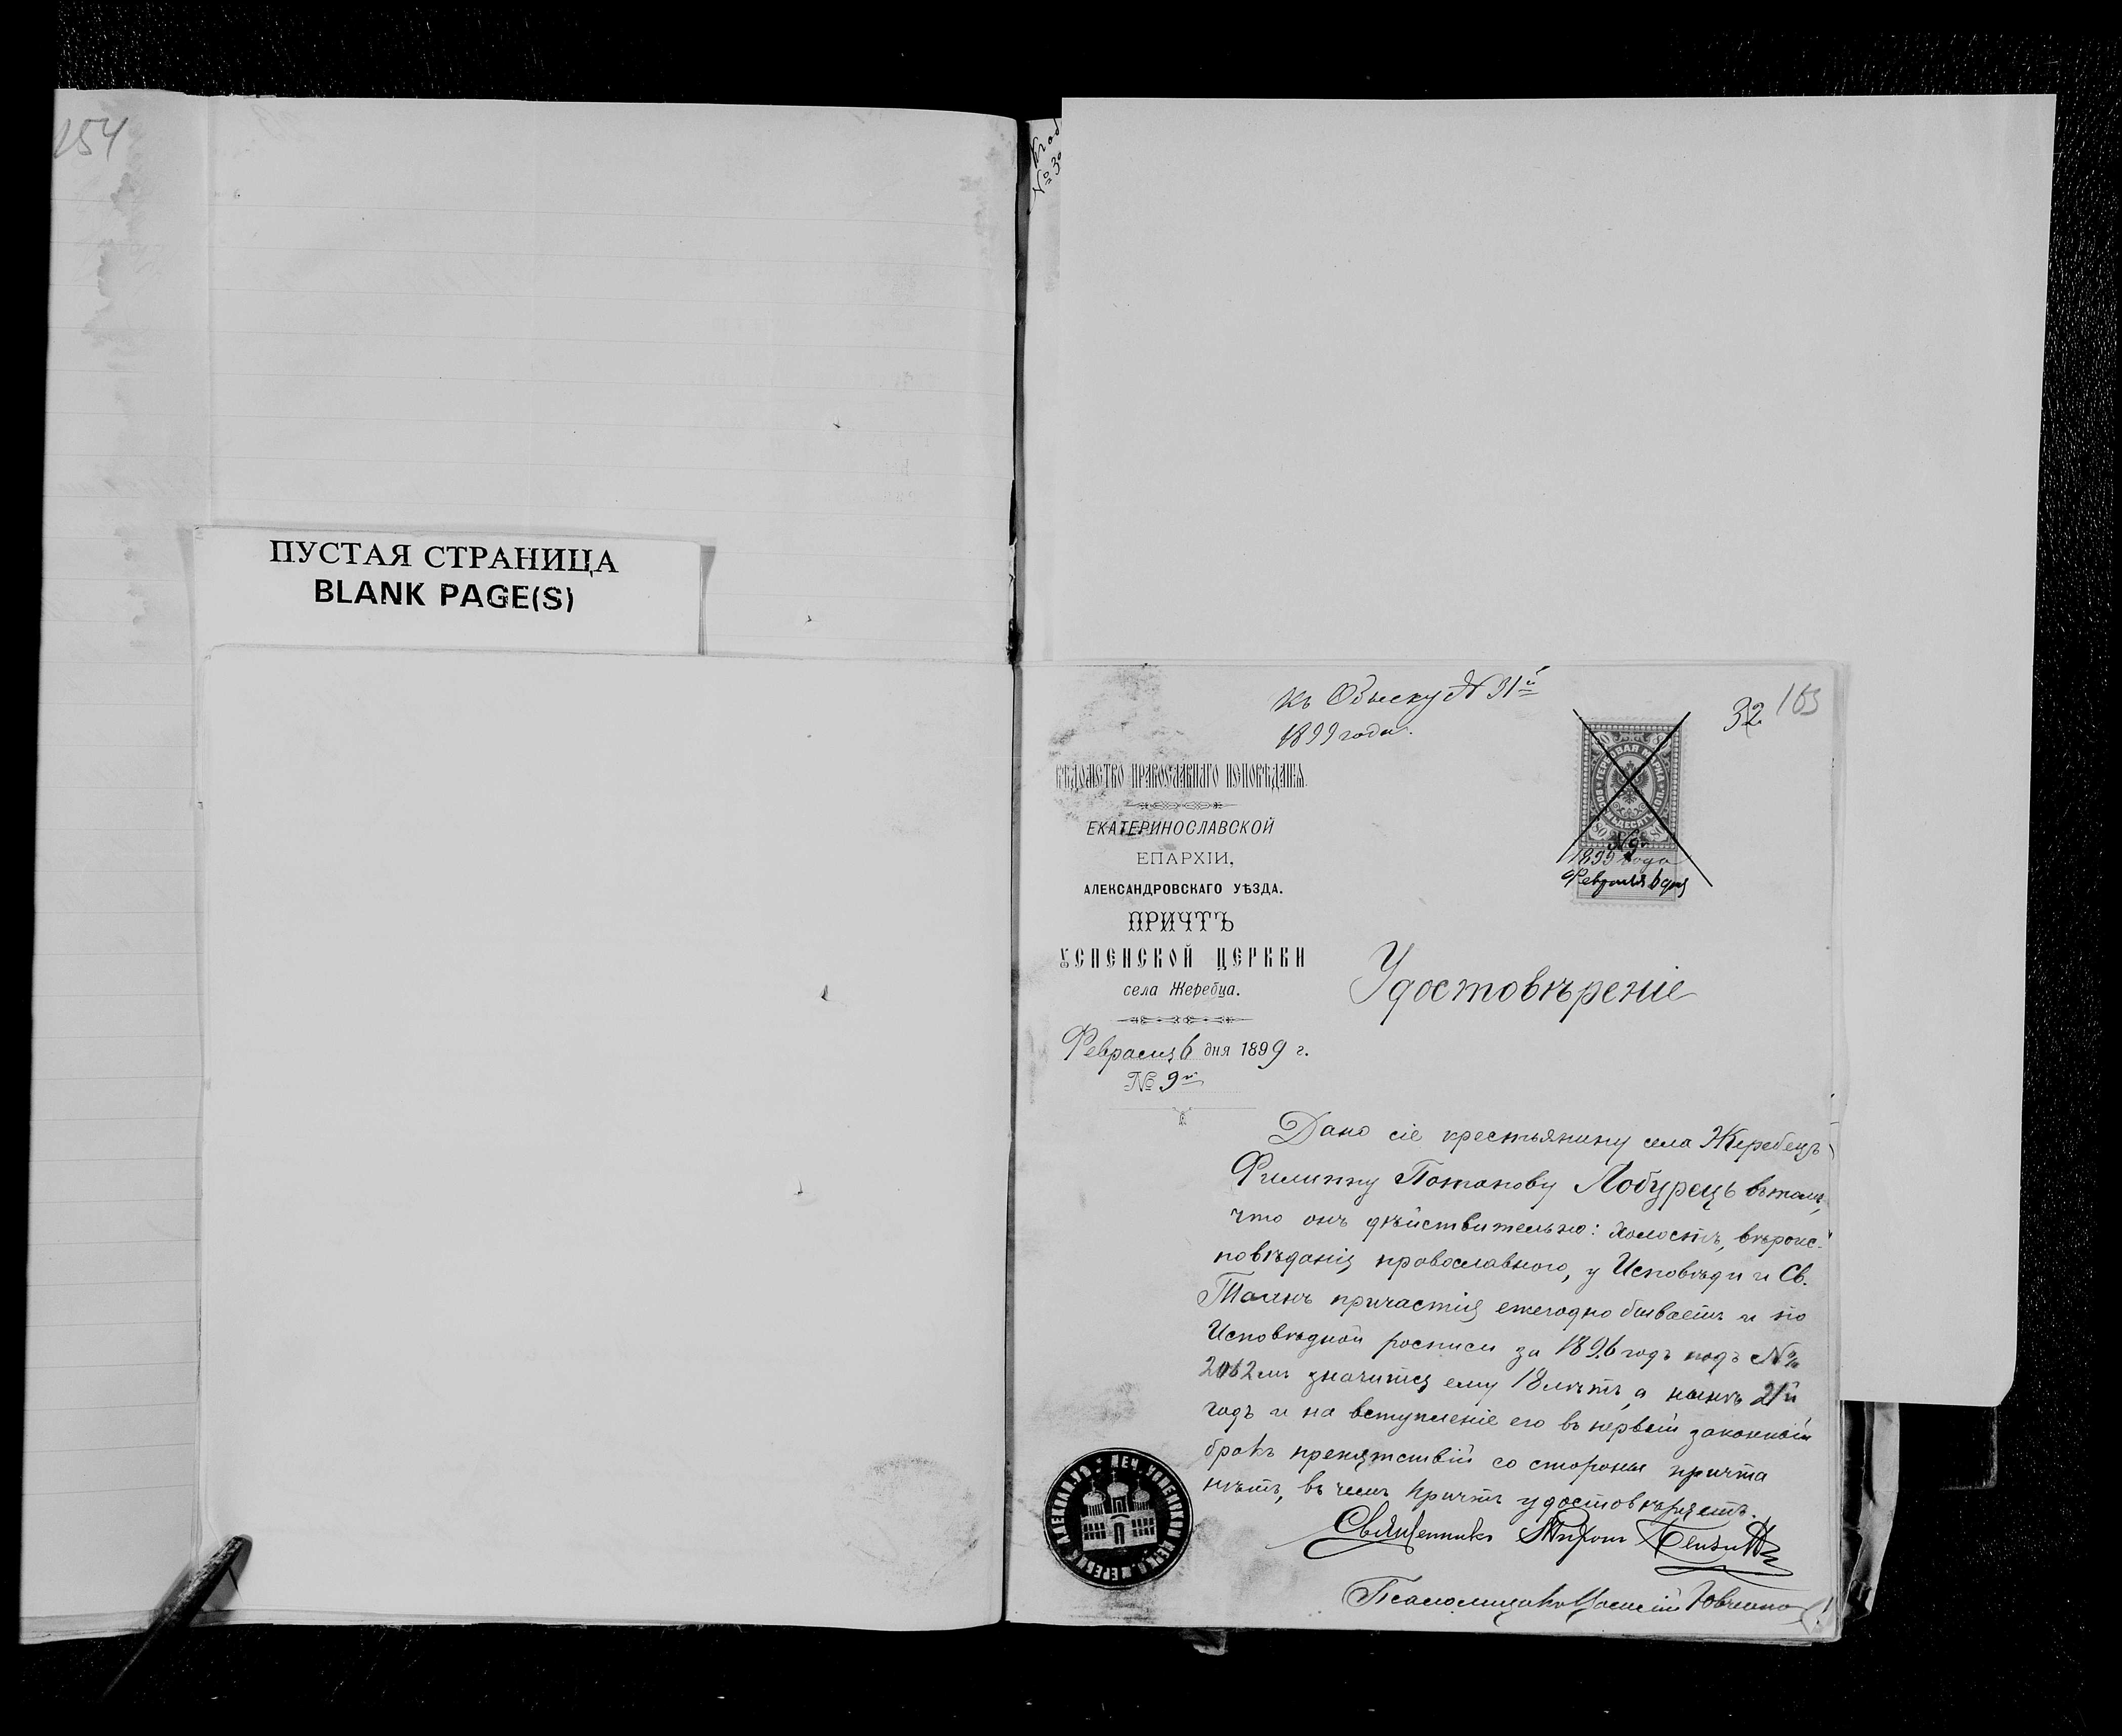 154
ПУСТАЯ СТРАНИЦА
BLANK PAGE(S)
№ 30
Къ Обыску № 31й
1899 года.
32
ВѢДОМСТВО ПРАВОСЛАВНАГО ИСПОВѢДАНІЯ.
ЕКАТЕРИНОСЛАВСКОЙ
ЕПАРХІИ,
АЛЕКСАНДРОВСКАГО УѢЗДА.
ПРИЧТЪ
УСПЕНСКОЙ ЦЕРКВИ
села Жеребца.
Февраля 6 дня 1899 г.
№ 9й
ГЕРБОВАЯ МАРКА
80
№ 9й
1899 года
Февраля 6 дня
Удостовѣреніе
Дано сіе крестьянину села Жеребецъ
Филиппу Потапову Лобурець въ томъ,
что онъ дѣйствительно: холостъ, вѣроис-
повѣданія православного, у Исповѣди и Св.
Таинъ причастія ежегодно бываетъ и по
Исповѣдной росписи за 1896 годъ подъ №
2062мъ значится ему 18 лѣтъ, а нынѣ 21й
годъ и на вступленіе его въ первый законный
бракъ препятствій со стороны причта
нѣтъ, въ чемъ причтъ удостовѣряетъ.
Священникъ
Псаломщикъ Василій